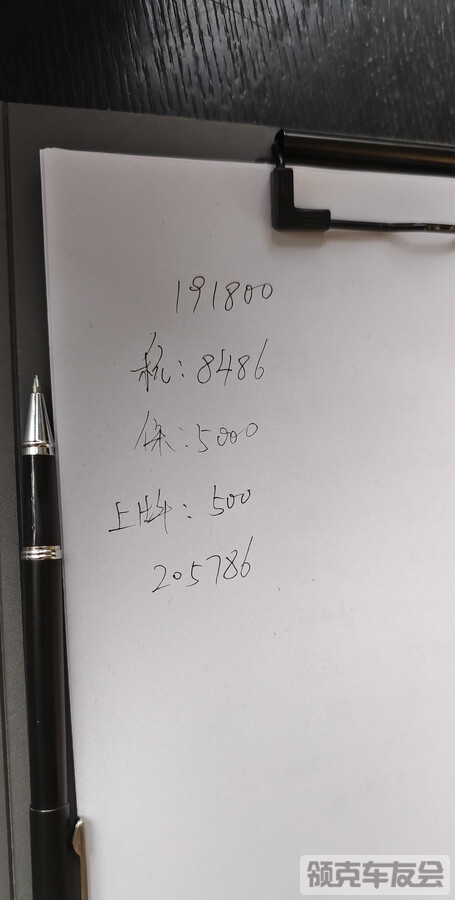 191800
税:8486
保:5000
上牌:500
205786
领克车友会